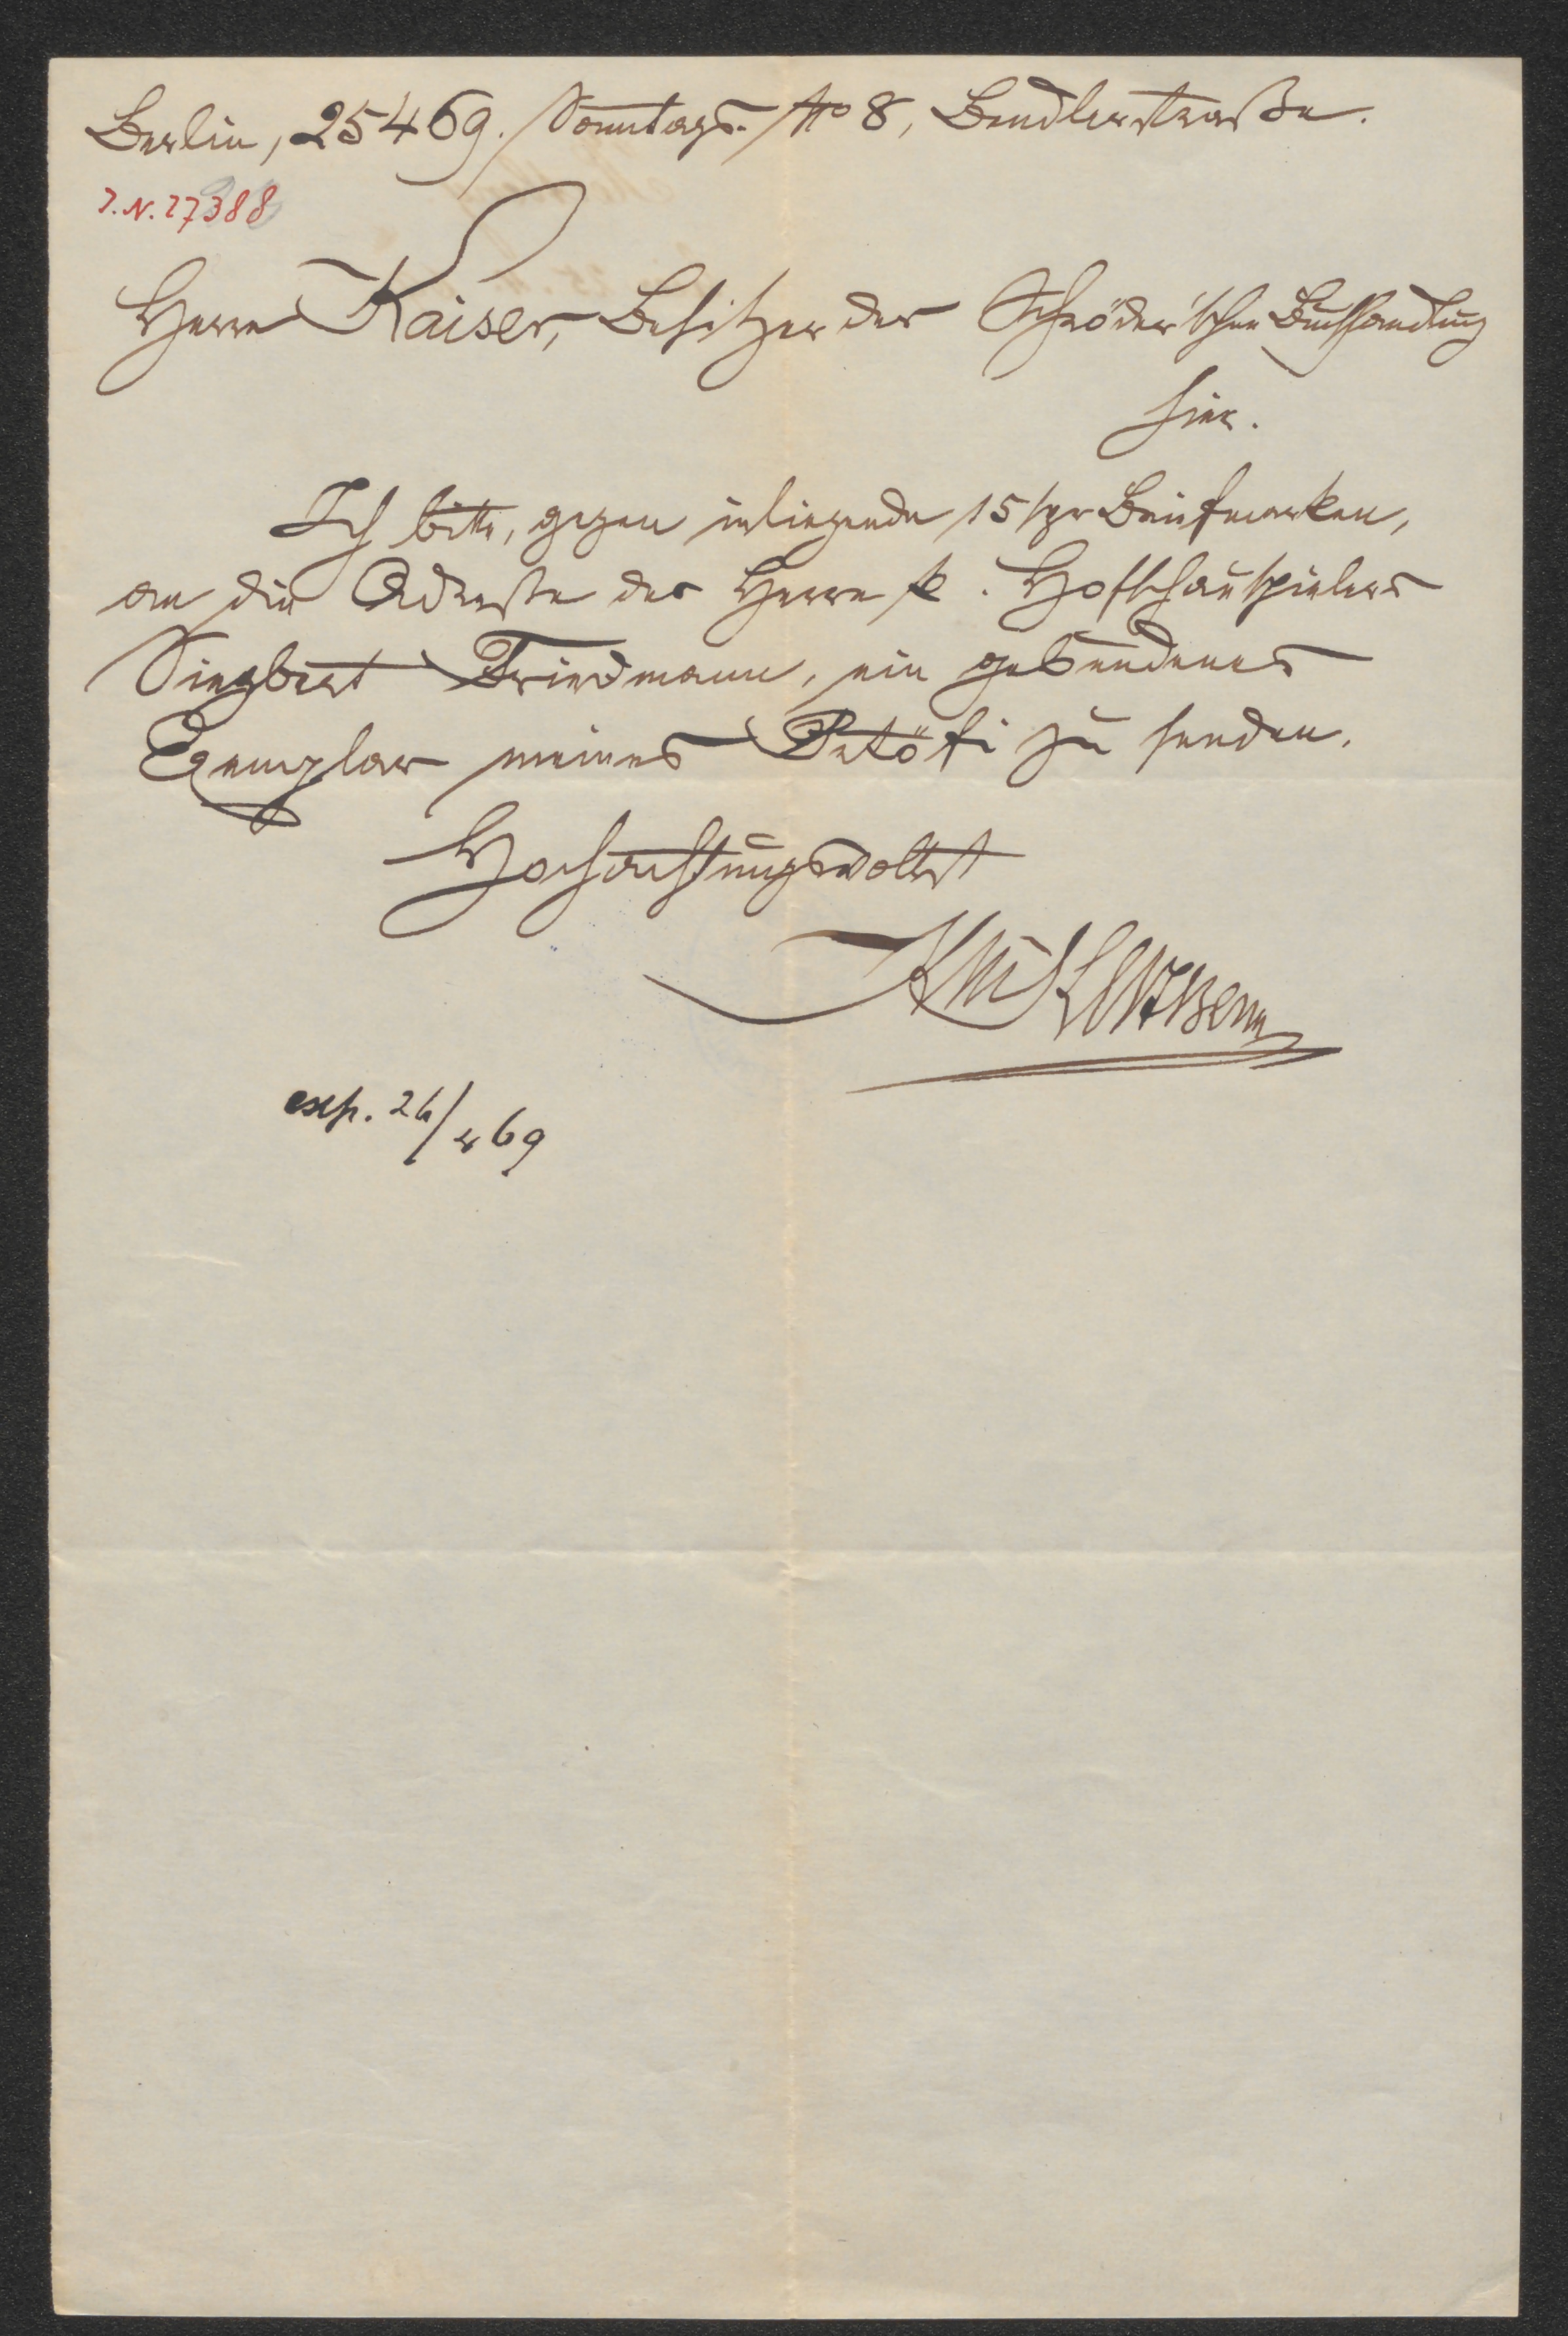 Berlin, 25 4 69. Sonntags. No 8, Bendlerstraße.
I.N. 27388
Herrn Kaiser, Besitzer der Schröder'schen Buchhandlung
hier.
Ich bitte, gegen inliegende 15 sgr Briefmarken,
an die Adresse des Herrn k. Hofschauspielers
Siegbert Friedmann, ein gebundenes
Exemplar meines Petöfi zu senden.
Hochachtungsvollst
Kertbeny
exp. 26/4 69